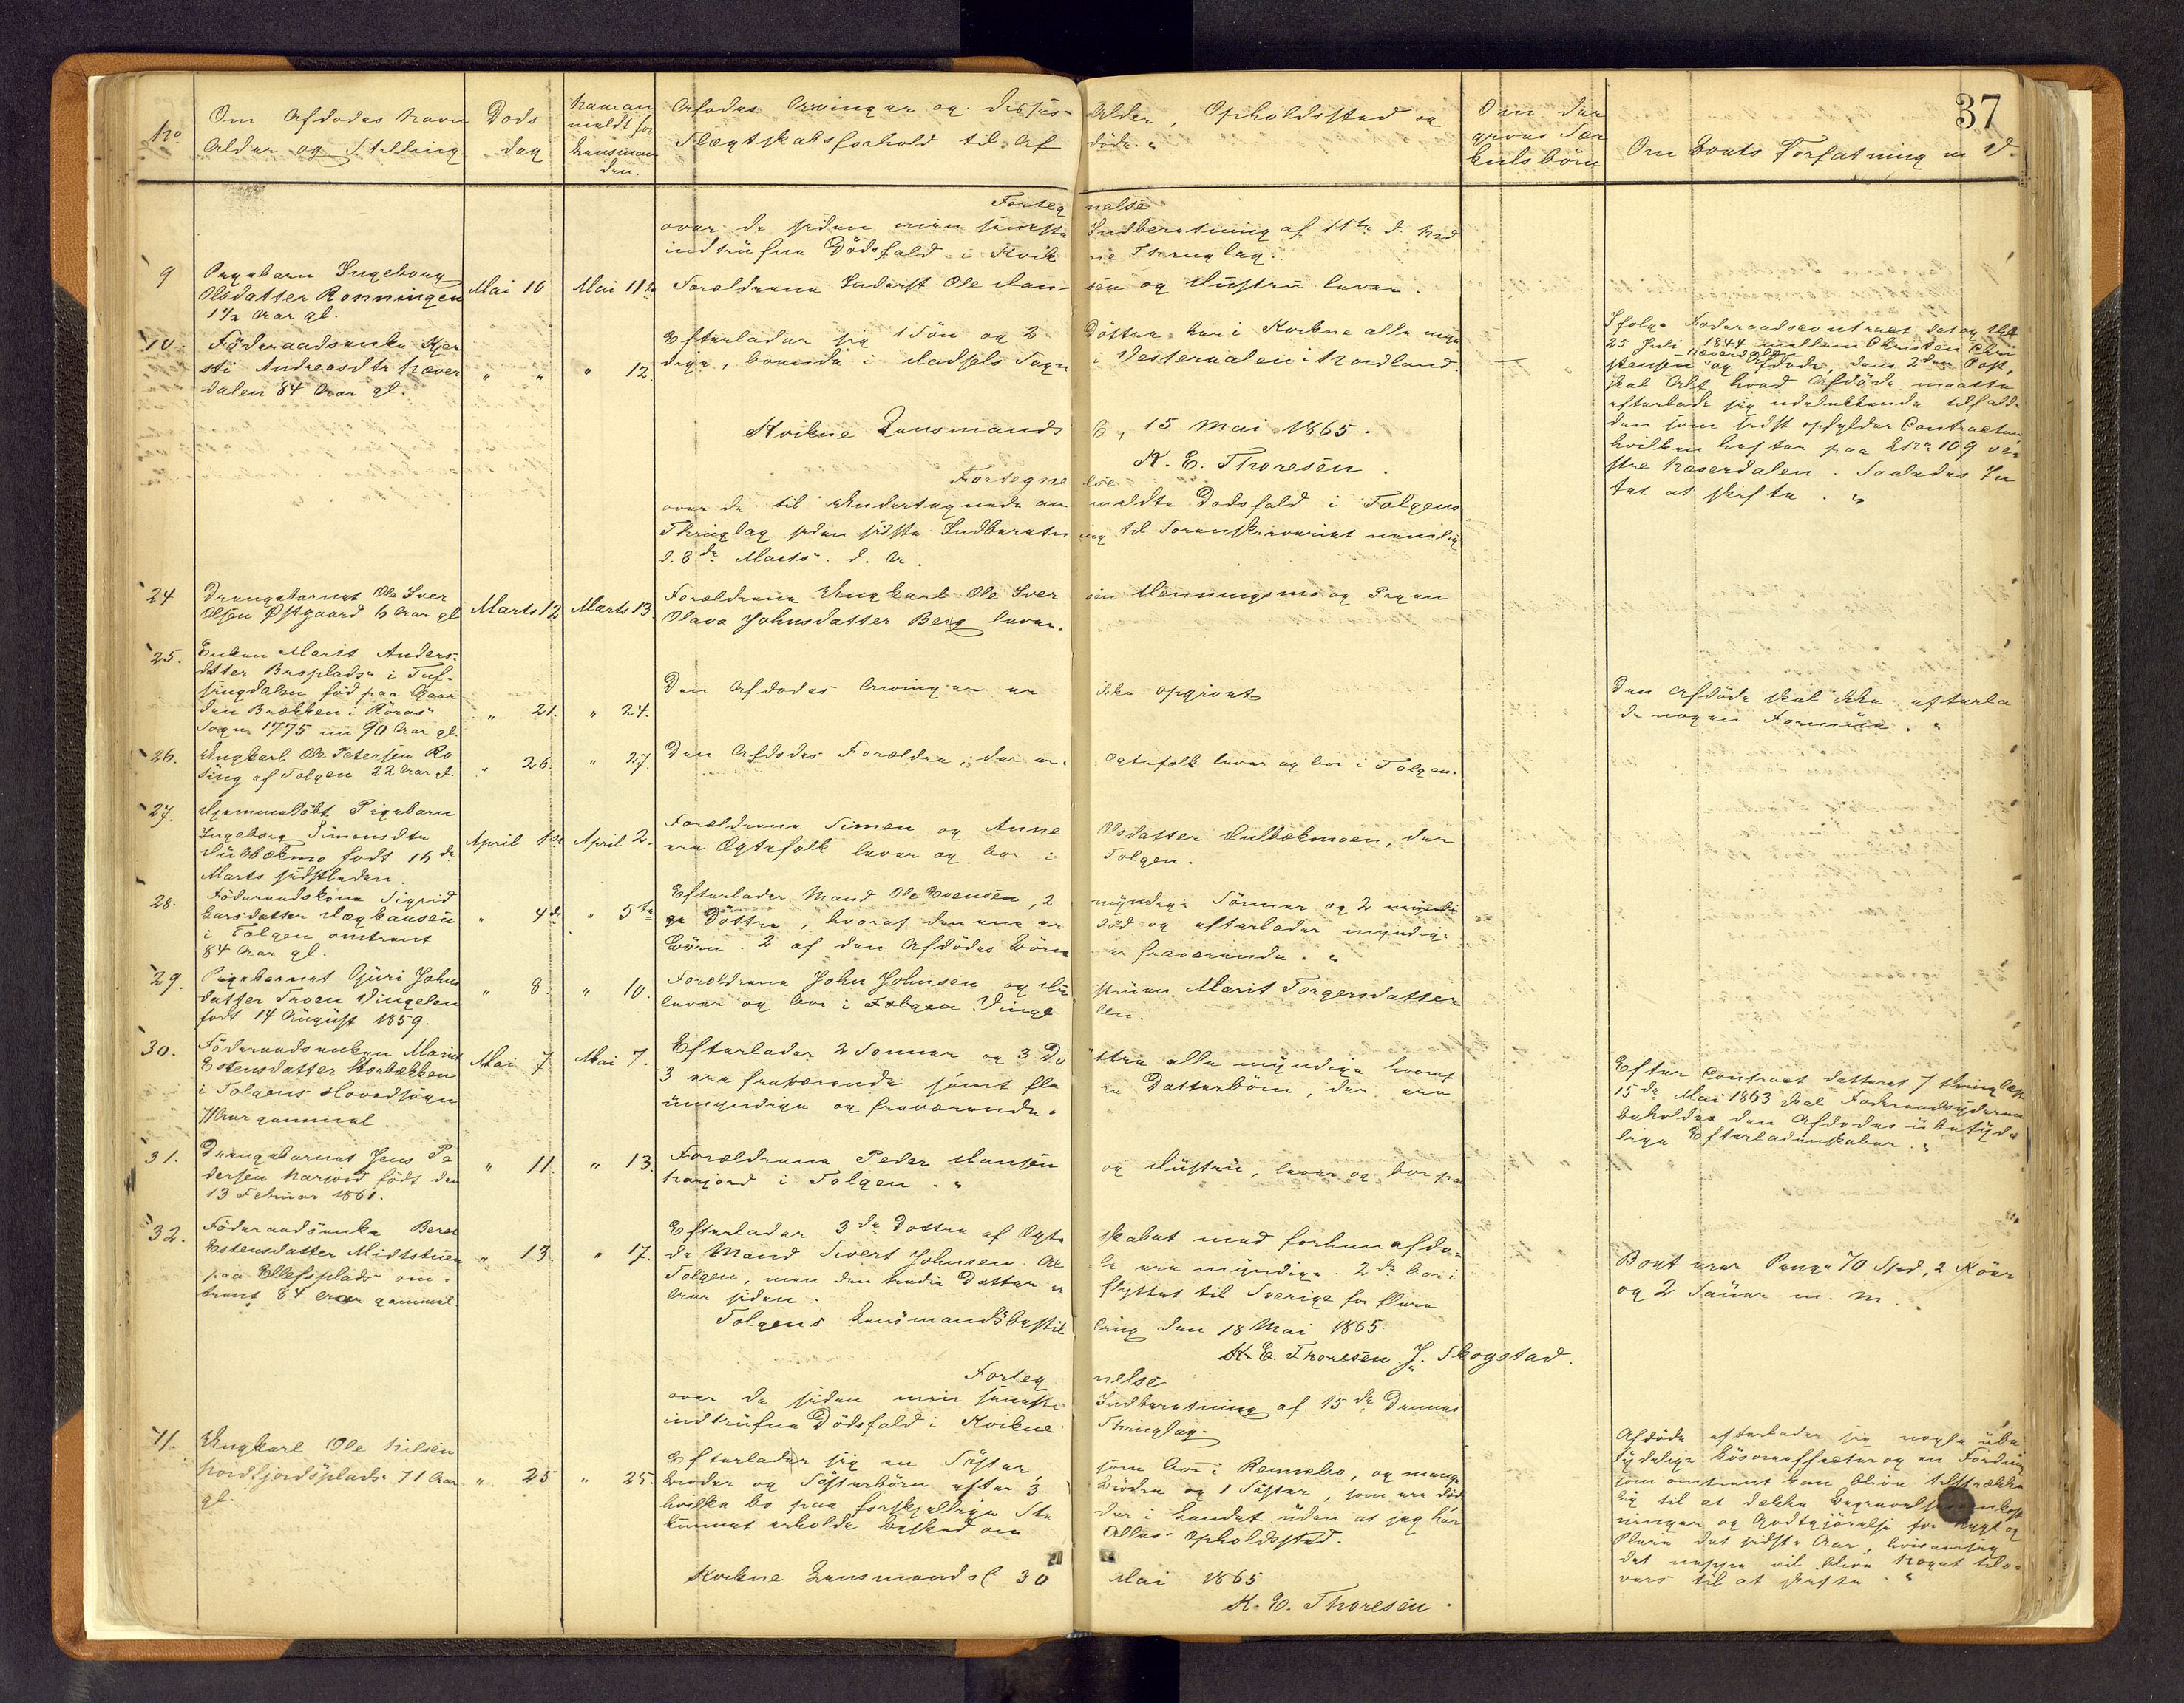 37
No
Om Afdødes Navn
Alder og Stilling
Døds
dag
Naar an
meldt for
Lensman
den.
Afødes Arvinger og disses Alder, Opholdsted og
Slægtskabsforhold til Af døde.
Om der
gives Sær
kulsbörn
Om Boets Forfatning m V.
Forteg nelse
over de siden min seneste Indberetning af 11te d. Md
indtrufne Dödsfald i Kvik ne Thinglag.
9
Pigebarn Ingeborg
Olsdatter Rønningen
1½ Aar gl.
Mai 10
Mai 11te
Forældrene Inderst Ole Han- sen og Hustru lever.
10
Föderaadsenke Kjer
sti Andreasdtr Næver
dalen 84 Aar gl.
" "
" 12.
Efterlader sig 1 Sön og 2 Döttre her i Kvikne alle myn
dige, boende i Hadsels Sogn i Vesteraalen i Nordland.
Ifølge Föderaadscontract dat og thl
25 Juli 1844 mellem Christen Chri
stensen Næverdalen og Afdøde, dens 2den Post,
skal Alt hvad Afdöde maatte
efterlade sig udelukkende tilfalde
den som sidst opfylder Contracten,
hvilken hefter paa LNr 109 ve-
stre Næverdalen. Saaledes In
tet at skifte. "
Kvikne Lensmands b, 15 Mai 1865.
K. E. Thoresen.
Fortegne lse
over de til Undertegnede an meldte Dødsfald i Tolgens
Thinglag siden sidste Indberetn ing til Sorenskriveriet nemlig
d. 8de Marts d. A.
24
Drengebarnet Ole Iver
Olsen Østgaard 6 Aar gl
Marts 12
Marts 13.
Forældrene Ungkarl Ole Iver sen Henningsmo og Pigen
Olava Johnsdatter Berg lever.
25.
Enken Marit Anders-
datter Broplads i Tuf-
singdalen född paa Gaar
den Brækken i Röraas
Sogn 1775 nu 90 Aar gl.
" 21.
" 24.
Den Afdödes Arvinger er ikke opgivet
Den Afdöde skal ikke efterla
de nogen Formue. "
26.
Ungkarl Ole Petersen Ro
sing af Tolgen 22 Aar gl.
" 26.
" 27.
Den Afdødes Forældre, der er Ægtefolk lever og bor i Tolgen.
27.
Hjemmedöbt Pigebarn
Ingeborg Simensdtr
Hulbækmo født 16de
Marts sidstleden.
April 1ste
April 2.
Forældrene Simen og Anne Olsdatter Hulbækmoen, der
ere Ægtefolk lever og bor i Tolgen.
28.
Föderaadskone Sigrid
Larsdatter
i Tolgen omtrent
84 Aar gl.
" 4de
" 5te
Efterlader Mand Ole Evensen, 2 myndige Sönner og 2 myndi
ge Döttre, hvoraf den ene er död og efterlader myndige
Börn. 2 af den Afdödes Börn er fraværende. "
29.
Pigebarnet Gjuri Johns
datter Troen Vingelen
født 14 August 1859.
" 8.
" 10.
Forældrene John Johnsen og Hu struen Marit Torgersdatter
lever og bor i Tolgen Vinge len.
30.
Föderaadsenken Marit
Estensdatter Storbækken
i Tolgens Hovedsogn
Aar gammel.
Mai 7.
Mai 7.
Efterlader 2 Sönner og 3 Dö ttre alle myndige hvoraf
3 ere fraværende samt fle re Datterbörn, der ere
umyndige og fraværende.
Efter Contract datteret 7 thinglæst
15de Mai 1863 skal Föderaadsyderen
beholde den Afdødes übetyde
lige Efterladenskaber. "
31.
Drengebarnet Jens Pe
dersen Narjord født den
13 Februar 1861.
" 11.
" 13.
Forældrene Peder Hansen og Hustru, lever og bor paa
Narjord i Tolgen. "
32.
Föderaadsenke Beret
Estensdatter Midtstuen
paa Ellefsplads om-
trent 84 Aar gammel
" 13.
" 17.
Efterlader 3de Døttre af Ægte skabet med forhen afdö-
de Mand Sivert Johnsen. Al le ere myndige. 2de bor i
Tolgen, men den tredie Datter er flyttet til Sverige for flere
Aar siden.
Boet eier Penge 70 Spd, 2 Köer
og 2 Sauer m. M.
Tolgens Lensmandsbestil ling den 18 Mai 1865.
K. E. Thoresen. J. Skogstad.
Forteg nelse
over de siden min seneste Indberetning af 15de Dennes
indtrufne Dödsfald i Kvikne Thinglag.
11.
Ungkarl Ole Nilsen
Nordfjordsplads 71 Aar
gl.
" 25
" 25.
Efterlader sig en Söster, som bor i Rennebo, og mange
Broder og Sösterbörn efter 3 Brödre og 1 Söster, som ere död
hvilke bo paa forskjellige Ste der i Landet uden at jeg har
kunnet erholde Besked om Alles Opholdssted.
Afdöde efterlader sig nogle übe
tydelige Lösöreeffecter og en Fordring
som omtrent kan blive tilstrække
lig til at dække Begravelsesomkost
ninger og Godtgjörelse for Rygt og
Pleie det sidste Aar, hvisaarsag
det neppe vil blive Noget tilo-
vers til at skifte. "
Kvikne Lensmandsb 30 Mai 1865
K. E. Thoresen.